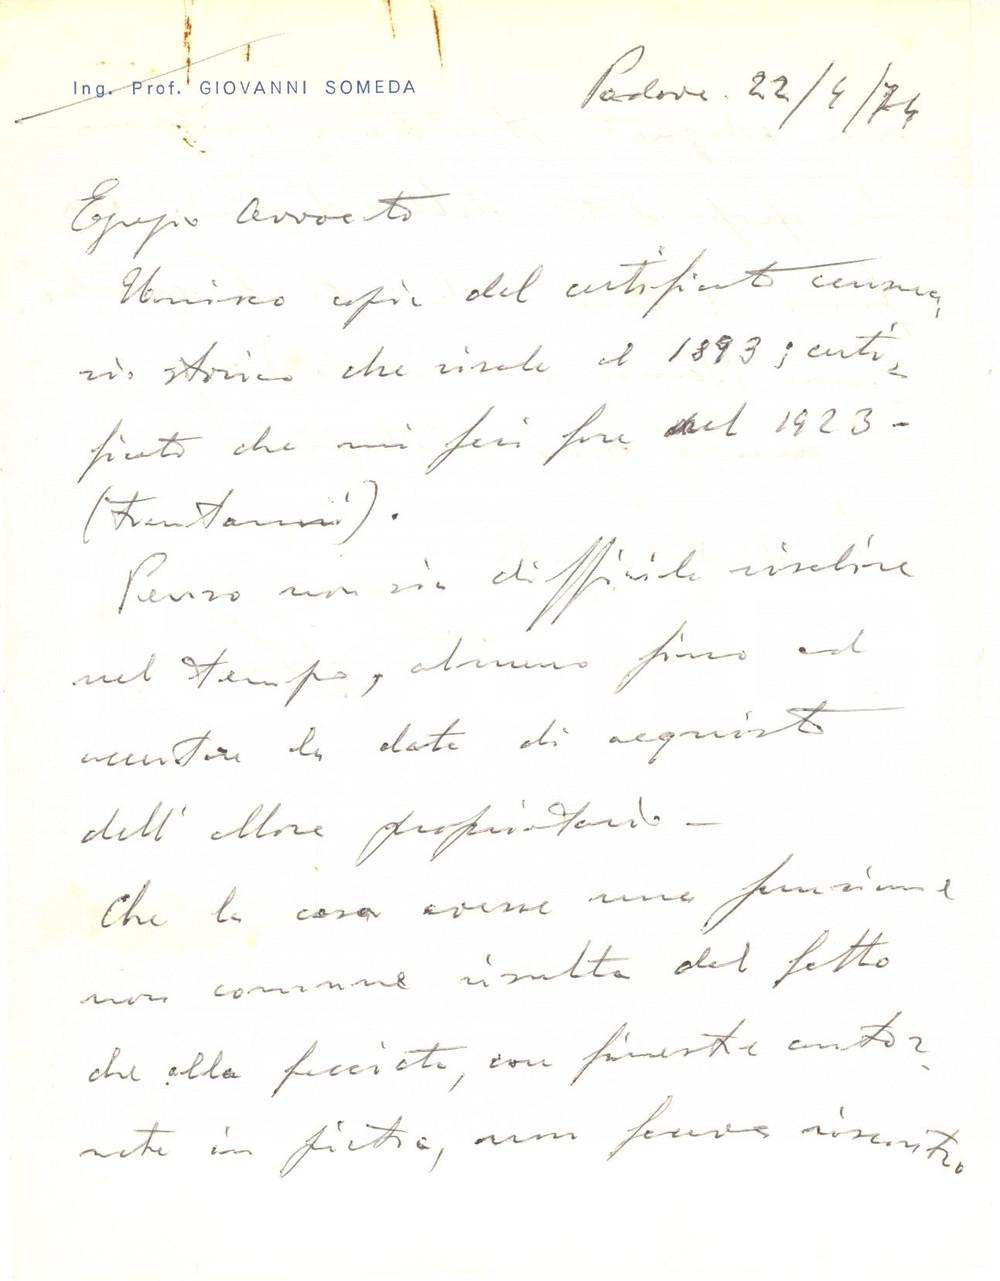 Ing. Prof. GIOVANNI SOMEDA
Padova 22/4/74
Egregio Avvocato
Unisco copia del certificato censua,
rio storico che risale al 1893; certi-
ficato che mi feci fare nel 1923 -
(trentanni).
Penso non sia difficile risalire
nel tempo, almeno fino ad
accertare la data di acquisto
dell'allora proprietario -
Che la casa avesse una funzione
non comune risulta dal fatto
che alla facciata, con finestre contor-
nate in pietra, non faceva riscontro